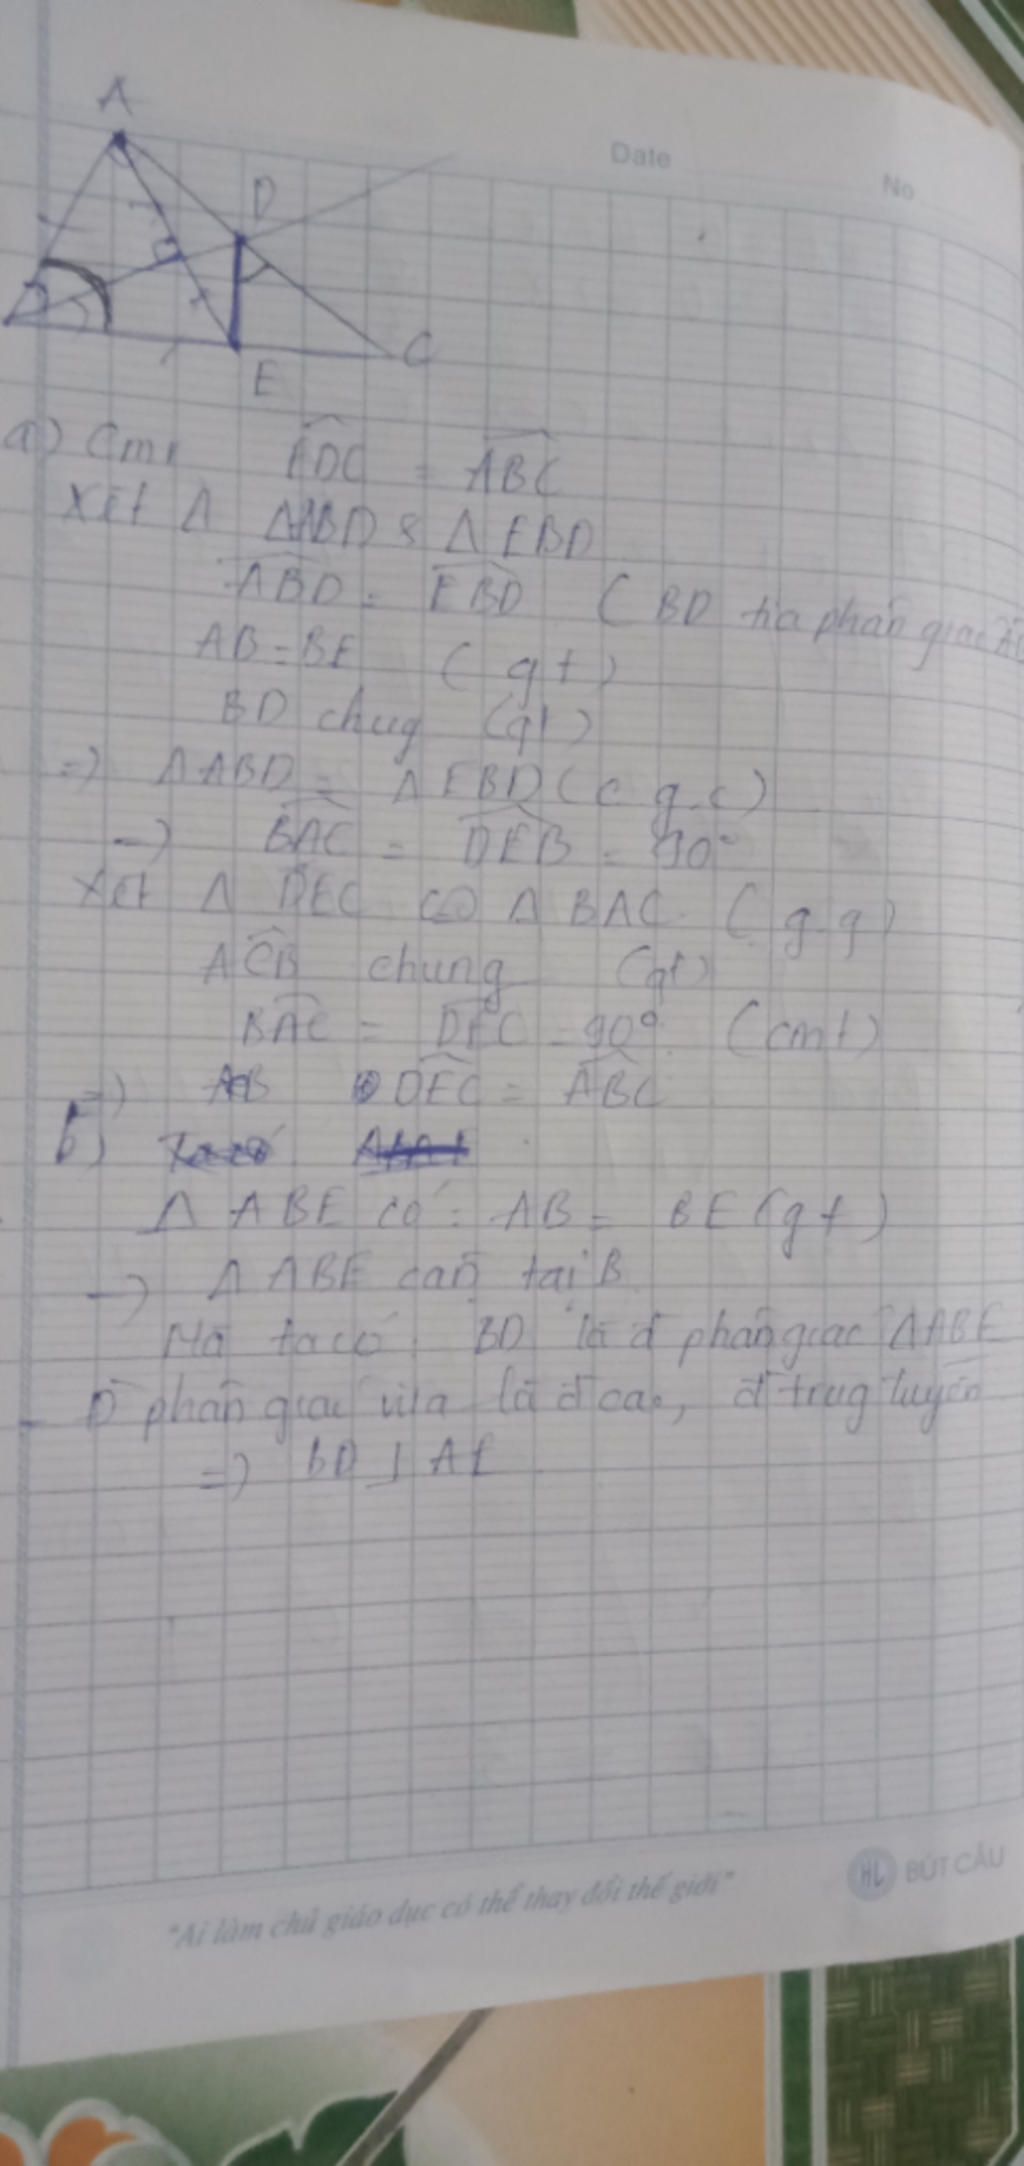 A
Date
No
D
B
C
E
a) Cm: EDC = ABC
Xét Δ ΔABD & Δ EBD
ABD = EBD ( BD tia phân giác
AB = BE ( gt )
BD chug (gt)
=> ΔABD = ΔEBD ( c g.c )
=> BAC = DEB = 90°
Xét Δ DEC ∽ Δ BAC ( g.g )
ACB chung (gt)
BAC = DEC = 90° (cmt)
=> DEC = ABC
b)
Δ ABE có: AB = BE ( gt )
=> Δ ABE cân tại B
Mà ta có: BD là đ phân giác ΔABE
Đ phân giác vừa là đ cao, đ trug tuyến
=> BD ⊥ AE
"Ai làm chủ giáo dục có thể thay đổi thế giới"
HL BÚT CÂU